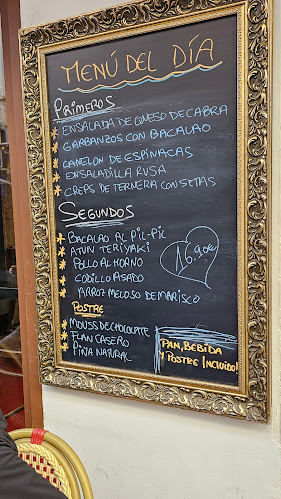 MENÚ DEL DÍA
PRIMEROS
ENSALADA DE QUESO DE CABRA
GARBANZOS CON BACALAO
CANELON DE ESPINACAS
ENSALADILLA RUSA
CREPS DE TERNERA CON SETAS
SEGUNDOS
BACALAO AL PIL-PIL
ATUN TERIYAKI
POLLO AL HORNO
CODILLO ASADO
ARROZ MELOSO DE MARISCO
16.90€
POSTRE
MOUSS DE CHOCOLATE
FLAN CASERO
PIÑA NATURAL
PAN, BEBIDA
Y POSTRE INCLUIDO!